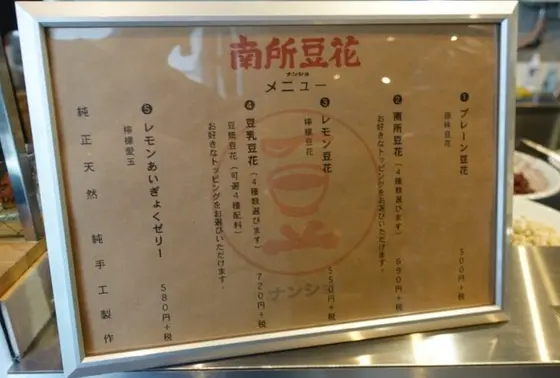 南所豆花
ナンショ
メニュー
❶ プレーン豆花
原味豆花
500円+税
❷ 南所豆花(4種類選びます)
お好きなトッピングをお選びいただけます。
650円+税
❸ レモン豆花
檸檬豆花
550円+税
❹ 豆乳豆花(4種類選びます)
豆漿豆花(可選4種配料)
お好きなトッピングをお選びいただけます。
720円+税
❺ レモンあいぎょくゼリー
檸檬愛玉
580円+税
純正・天然 純手工製作
ナンショ